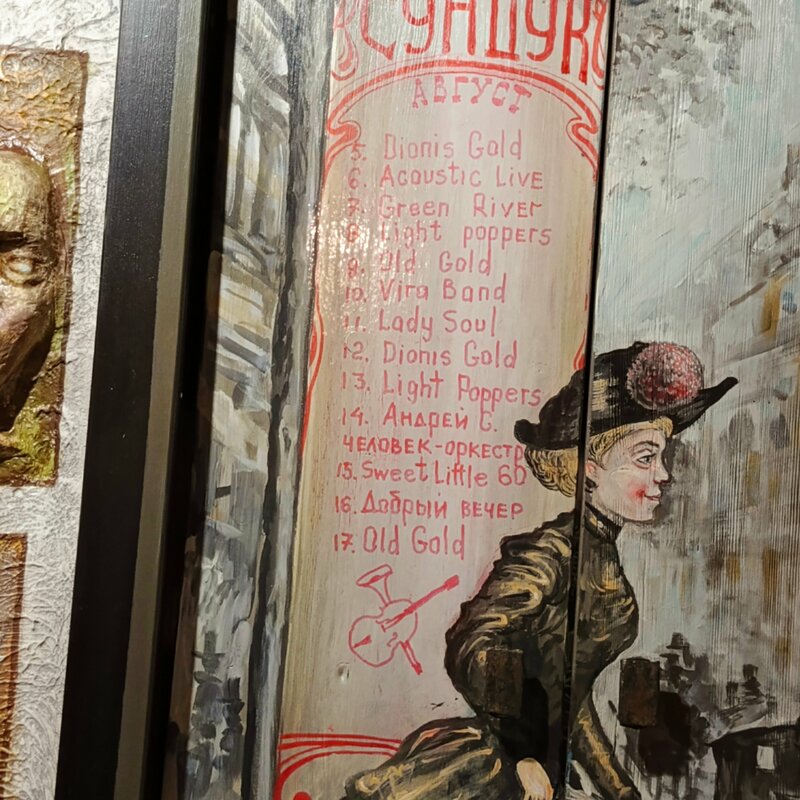 СУНДУК
АВГУСТ
5. Dionis Gold
6. Acoustic Live
7. Green River
8. Light poppers
9. Old Gold
10. Vira Band
11. Lady Soul
12. Dionis Gold
13. Light Poppers
14. Андрей С.
человек-оркестр
15. Sweet Little 60
16. Добрый вечер
17. Old Gold